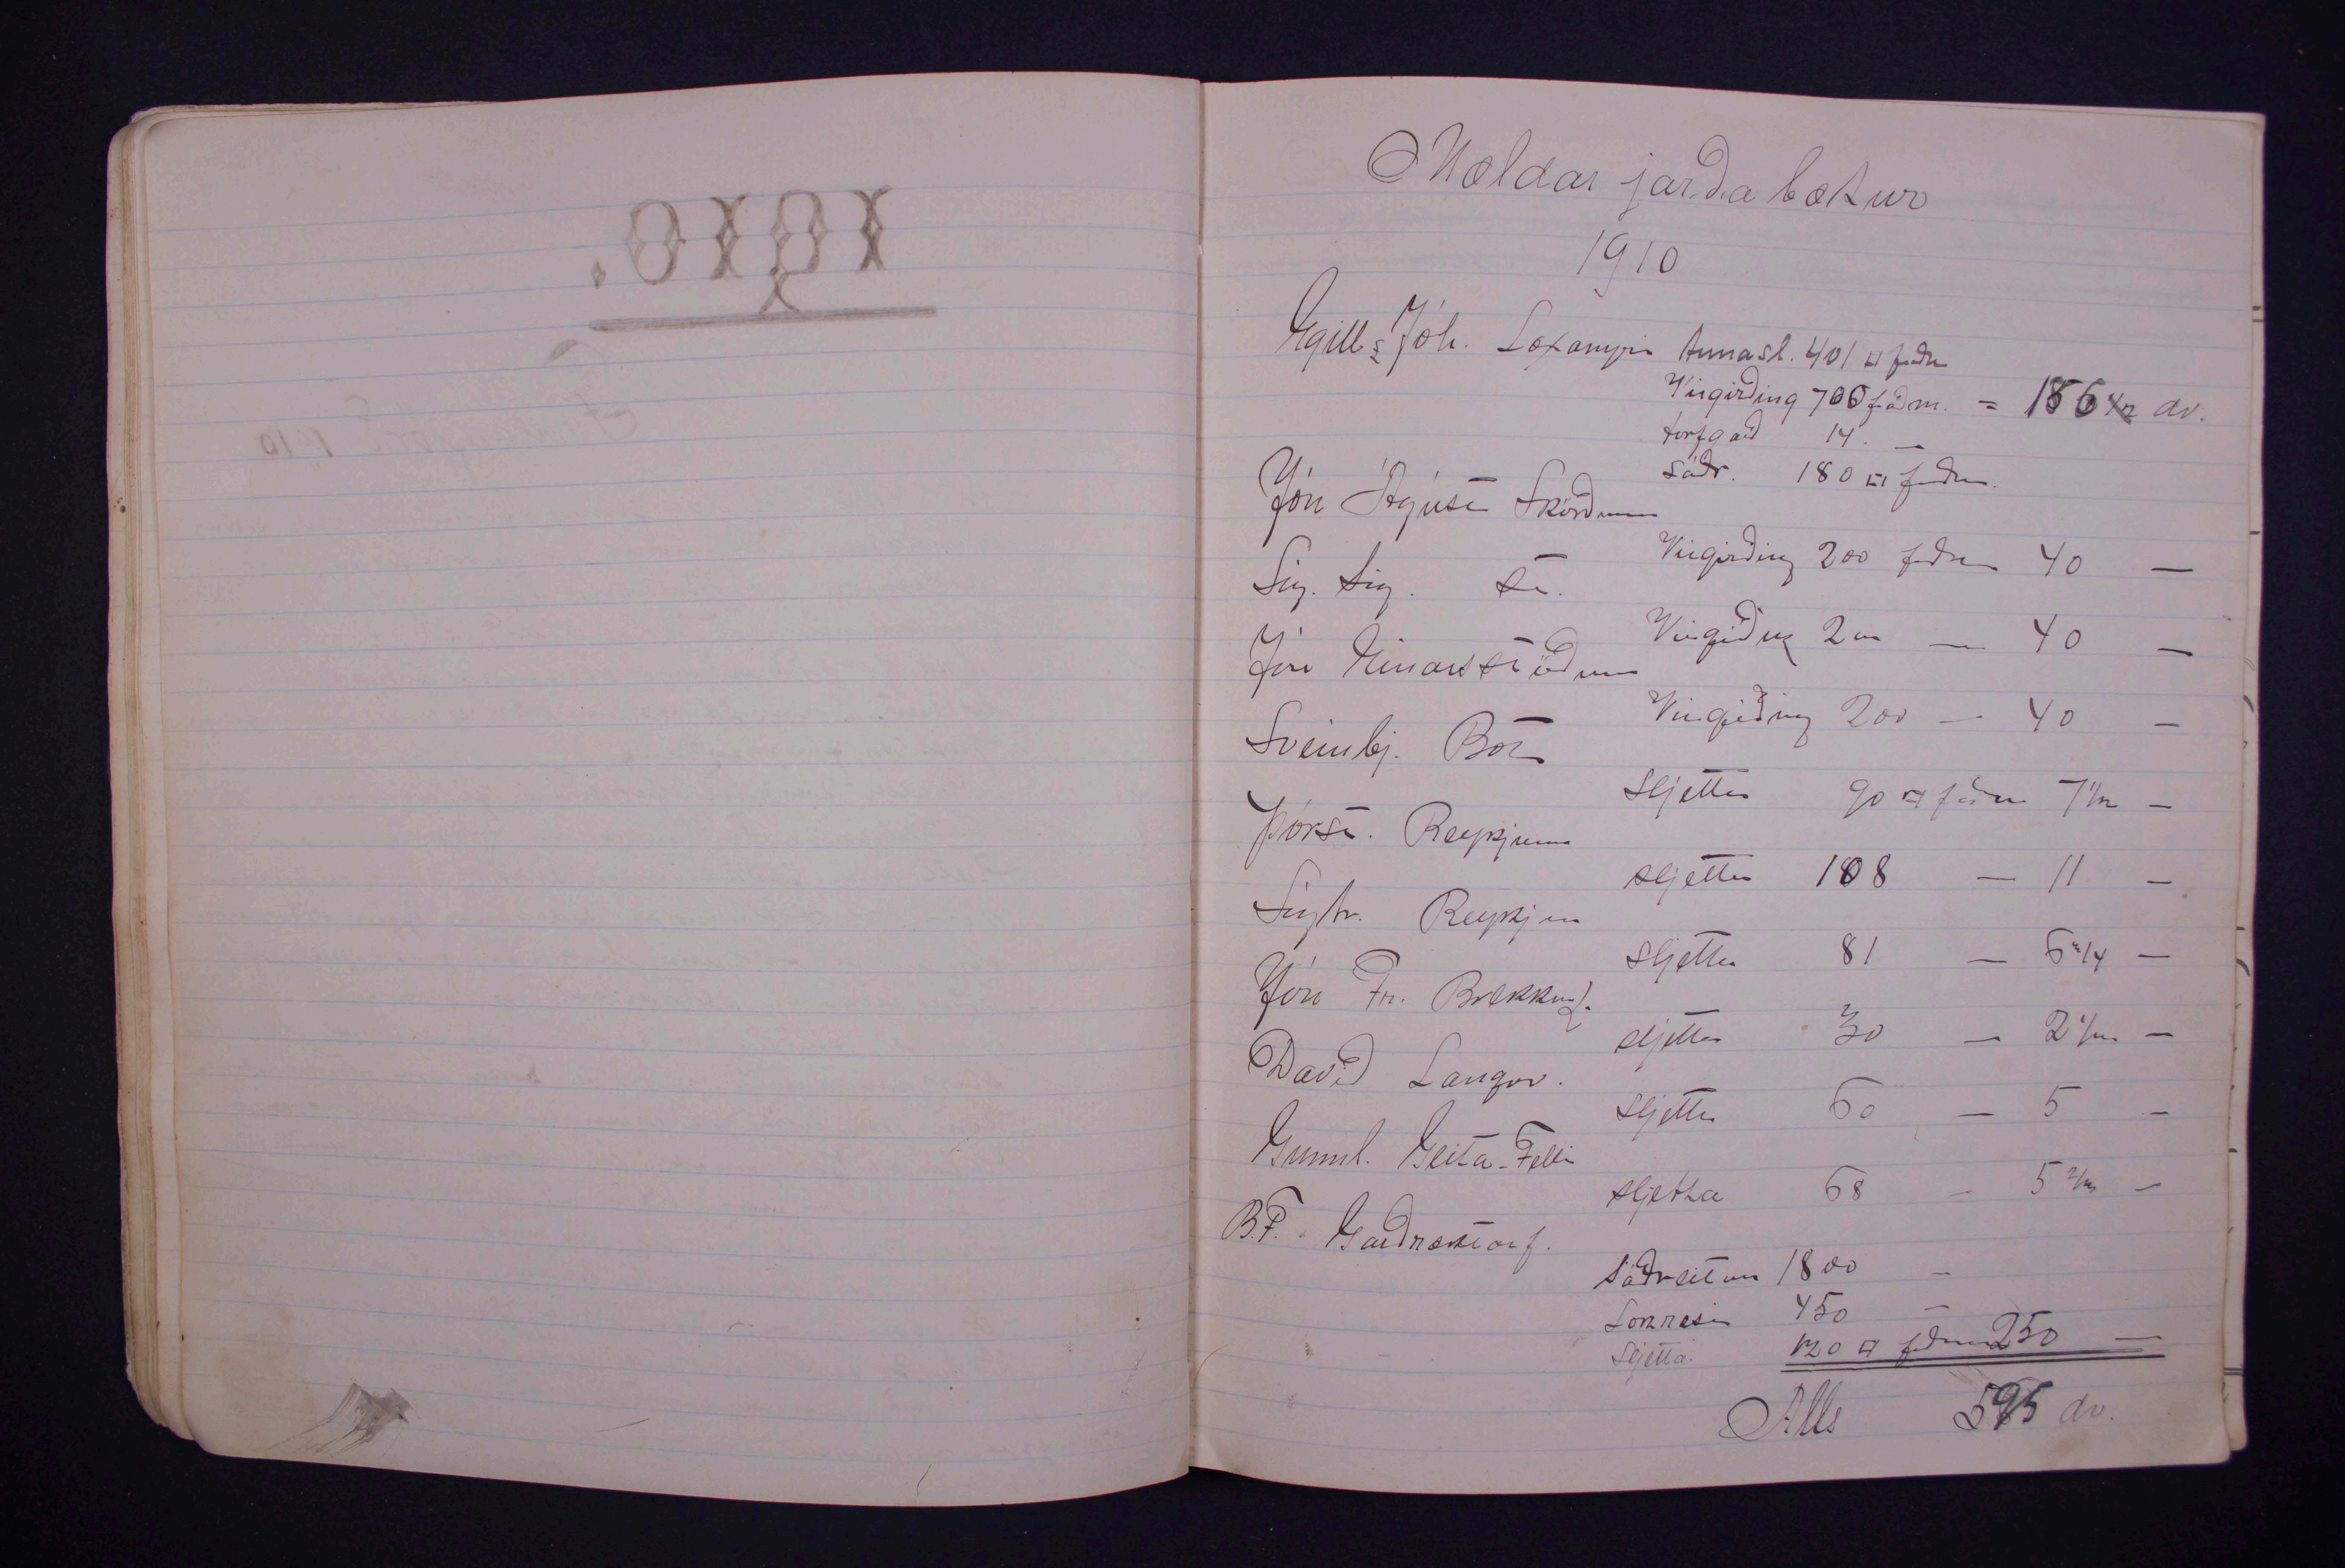 1910.
Mældar jarðabætur
1910
Egill & Jóh. Laxamýri Túnasl. 401 □ faðm
Vírgirðing 700 faðm. = 186 dv.
torfgarð 14. —
Sáðr. 180 □ faðm.
Jón Ágúst Skörðum
Vírgirðing 200 faðm 40 —
Sig. Sig. st.
Vírgirðing 200 — 40 —
Jón Einarsstöðum
Vírgirðing 200 — 40 —
Sveinbj. Bót
Sljettu 90 □ faðm 7 1/2 —
Þorst. Reykjum
sljettu 108 — 11 —
Sigtr. Reykjum
Sljettu 81 — 6 3/4 —
Jón Fr. Brekkna
sljettu 30 — 2 1/2 —
Davíð Langav.
Sljettu 60 — 5 —
Gunnl. Geita-Felli
sljetta 68 — 5 —
B.F. Garðræktarf.
Sáðreitum 1800 —
450 —
Sljetta. 120 □ faðm 250 —
Alls 595 dv.